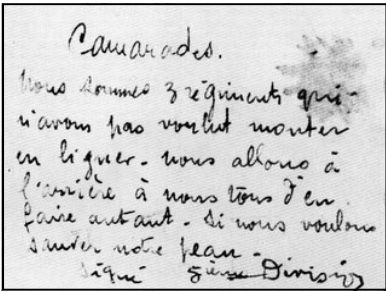 Camarades.
Nous sommes 3 régiments qui
n'avons pas voulut monter
en ligner - nous allons à
l'arrière à nous tous d'en
faire autant - si nous voulons
sauver notre peau -
Signé 5ième Division